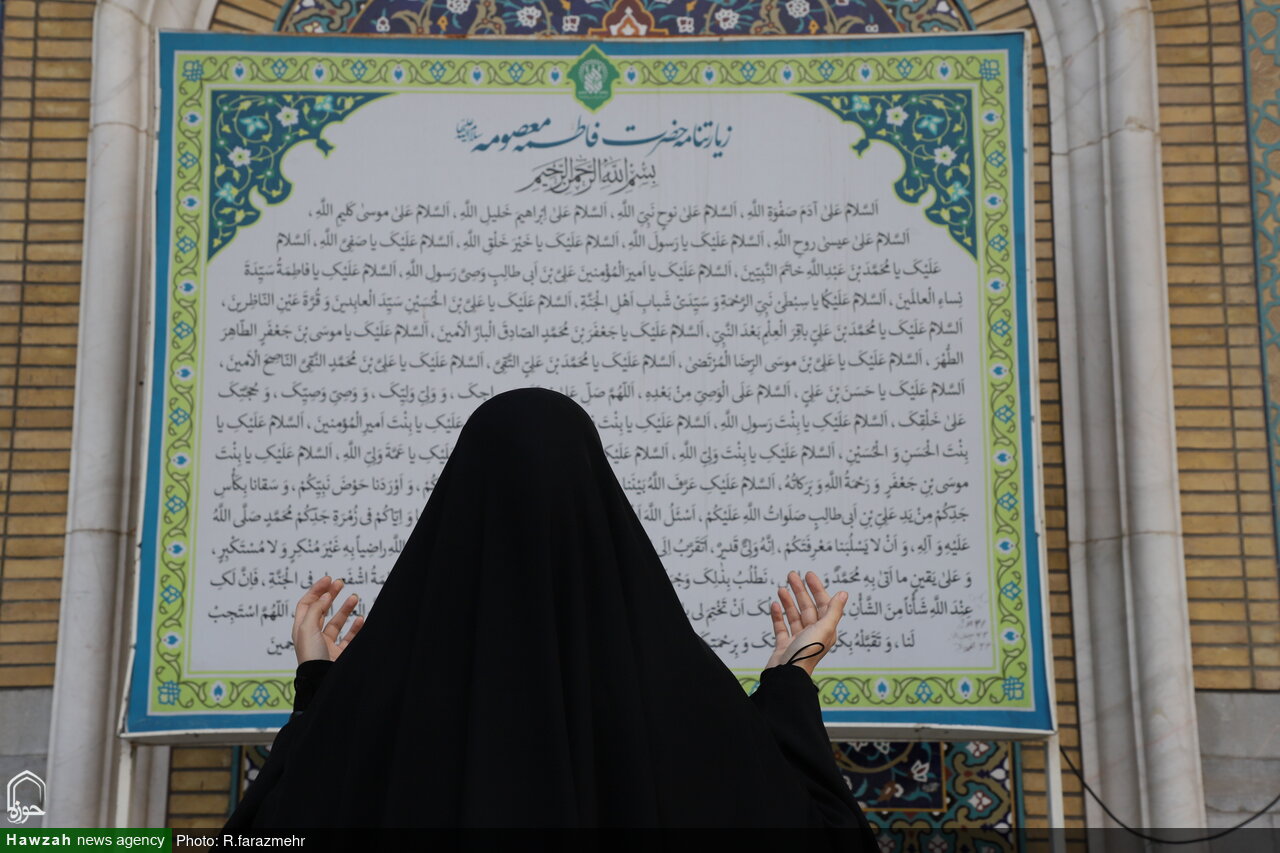 زیارتنامه حضرت فاطمه معصومه سلام‌الله‌علیها
بِسْمِ اللَّهِ الرَّحْمنِ الرَّحيمِ
اَلسَّلامُ عَلىٰ آدَمَ صَفْوَةِ اللَّهِ ، اَلسَّلامُ عَلىٰ نوحٍ نَبِيِّ اللَّهِ ، اَلسَّلامُ عَلىٰ اِبْراهيمَ خَليلِ اللَّهِ ، اَلسَّلامُ عَلىٰ موسىٰ كَليمِ اللَّهِ ،
اَلسَّلامُ عَلىٰ عيسىٰ روحِ اللَّهِ ، اَلسَّلامُ عَلَيْكَ يا رَسولَ اللَّهِ ، اَلسَّلامُ عَلَيْكَ يا خَيْرَ خَلْقِ اللَّهِ ، اَلسَّلامُ عَلَيْكَ يا صَفِىَّ اللَّهِ ، اَلسَّلامُ
عَلَيْكَ يا مُحَمَّدَ بْنَ عَبْدِاللَّهِ خاتَمَ النَّبِيّينَ ، اَلسَّلامُ عَلَيْكَ يا اَميرَ الْمُؤْمِنينَ عَلِيَّ بْنَ اَبى طالِبٍ وَصِيَّ رَسولِ اللَّهِ ، اَلسَّلامُ عَلَيْكِ يا فاطِمَةُ سَيِّدَةَ
نِساءِ الْعالَمينَ ، اَلسَّلامُ عَلَيْكُما يا سِبْطَىْ نَبِيِّ الرَّحْمَةِ وَ سَيِّدَىْ شَبابِ اَهْلِ الْجَنَّةِ ، اَلسَّلامُ عَلَيْكَ يا عَلِيَّ بْنَ الْحُسَيْنِ سَيِّدَ الْعابِدينَ وَ قُرَّةَ عَيْنِ النّاظِرينَ ،
اَلسَّلامُ عَلَيْكَ يا مُحَمَّدَ بْنَ عَلِيٍّ باقِرَ الْعِلْمِ بَعْدَ النَّبِيِّ ، اَلسَّلامُ عَلَيْكَ يا جَعْفَرَ بْنَ مُحَمَّدٍ الصّادِقَ الْبارَّ الْاَمينَ ، اَلسَّلامُ عَلَيْكَ يا موسَى بْنَ جَعْفَرٍ الطّاهِرَ
الطُّهْرَ ، اَلسَّلامُ عَلَيْكَ يا عَلِيَّ بْنَ موسَى الرِّضَا الْمُرْتَضىٰ ، اَلسَّلامُ عَلَيْكَ يا مُحَمَّدَ بْنَ عَلِيٍّ التَّقِيَّ ، اَلسَّلامُ عَلَيْكَ يا عَلِيَّ بْنَ مُحَمَّدٍ النَّقِيَّ النّاصِحَ الْاَمينَ ،
اَلسَّلامُ عَلَيْكَ يا حَسَنَ بْنَ عَلِيٍّ ، اَلسَّلامُ عَلَى الْوَصِيِّ مِنْ بَعْدِهِ ، اَللّٰهُمَّ صَلِّ وَ وَلِيِّ وَلِيِّكَ ، وَ وَصِيِّ وَصِيِّكَ ، وَ حُجَّتِكَ
عَلىٰ خَلْقِكَ ، اَلسَّلامُ عَلَيْكِ يا بِنْتَ رَسولِ اللَّهِ ، اَلسَّلامُ عَلَيْكِ يا عَلَيْكِ يا بِنْتَ اَميرِ الْمُؤْمِنينَ ، اَلسَّلامُ عَلَيْكِ يا
بِنْتَ الْحَسَنِ وَ الْحُسَيْنِ ، اَلسَّلامُ عَلَيْكِ يا بِنْتَ وَلِيِّ اللَّهِ ، اَلسَّلامُ يا عَمَّةَ وَلِيِّ اللَّهِ ، اَلسَّلامُ عَلَيْكِ يا بِنْتَ
موسَى بْنِ جَعْفَرٍ وَ رَحْمَةُ اللَّهِ وَ بَرَكاتُهُ ، اَلسَّلامُ عَلَيْكِ عَرَّفَ اللَّهُ بَيْنَنا وَ اَوْرَدَنا حَوْضَ نَبِيِّكُمْ ، وَ سَقانا بِكَأْسِ
جَدِّكُمْ مِنْ يَدِ عَلِيِّ بْنِ اَبى طالِبٍ صَلَواتُ اللَّهِ عَلَيْكُمْ ، اَسْئَلُ اللَّهَ وَ اِيّاكُمْ فى زُمْرَةِ جَدِّكُمْ مُحَمَّدٍ صَلَّى اللَّهُ
عَلَيْهِ وَ آلِهِ ، وَ اَنْ لا يَسْلُبَنا مَعْرِفَتَكُمْ ، اِنَّهُ وَلِيٌّ قَديرٌ ، اَتَقَرَّبُ اِلَى اللَّهِ راضِياً بِهِ غَيْرَ مُنْكِرٍ وَ لا مُسْتَكْبِرٍ ،
وَ عَلىٰ يَقينِ ما اَتىٰ بِهِ مُحَمَّدٌ وَ نَطْلُبُ بِذٰلِكَ فِى الْجَنَّةِ ، فَاِنَّ لَكِ
عِنْدَ اللَّهِ شَأْناً مِنَ الشَّأْنِ اَنْ تَخْتِمَ لى اَللّٰهُمَّ اسْتَجِبْ
لَنا ، وَ تَقَبَّلْهُ وَ بِرَحْمَتِكَ
حوزه
Hawzah news agency
Photo: R.farazmehr